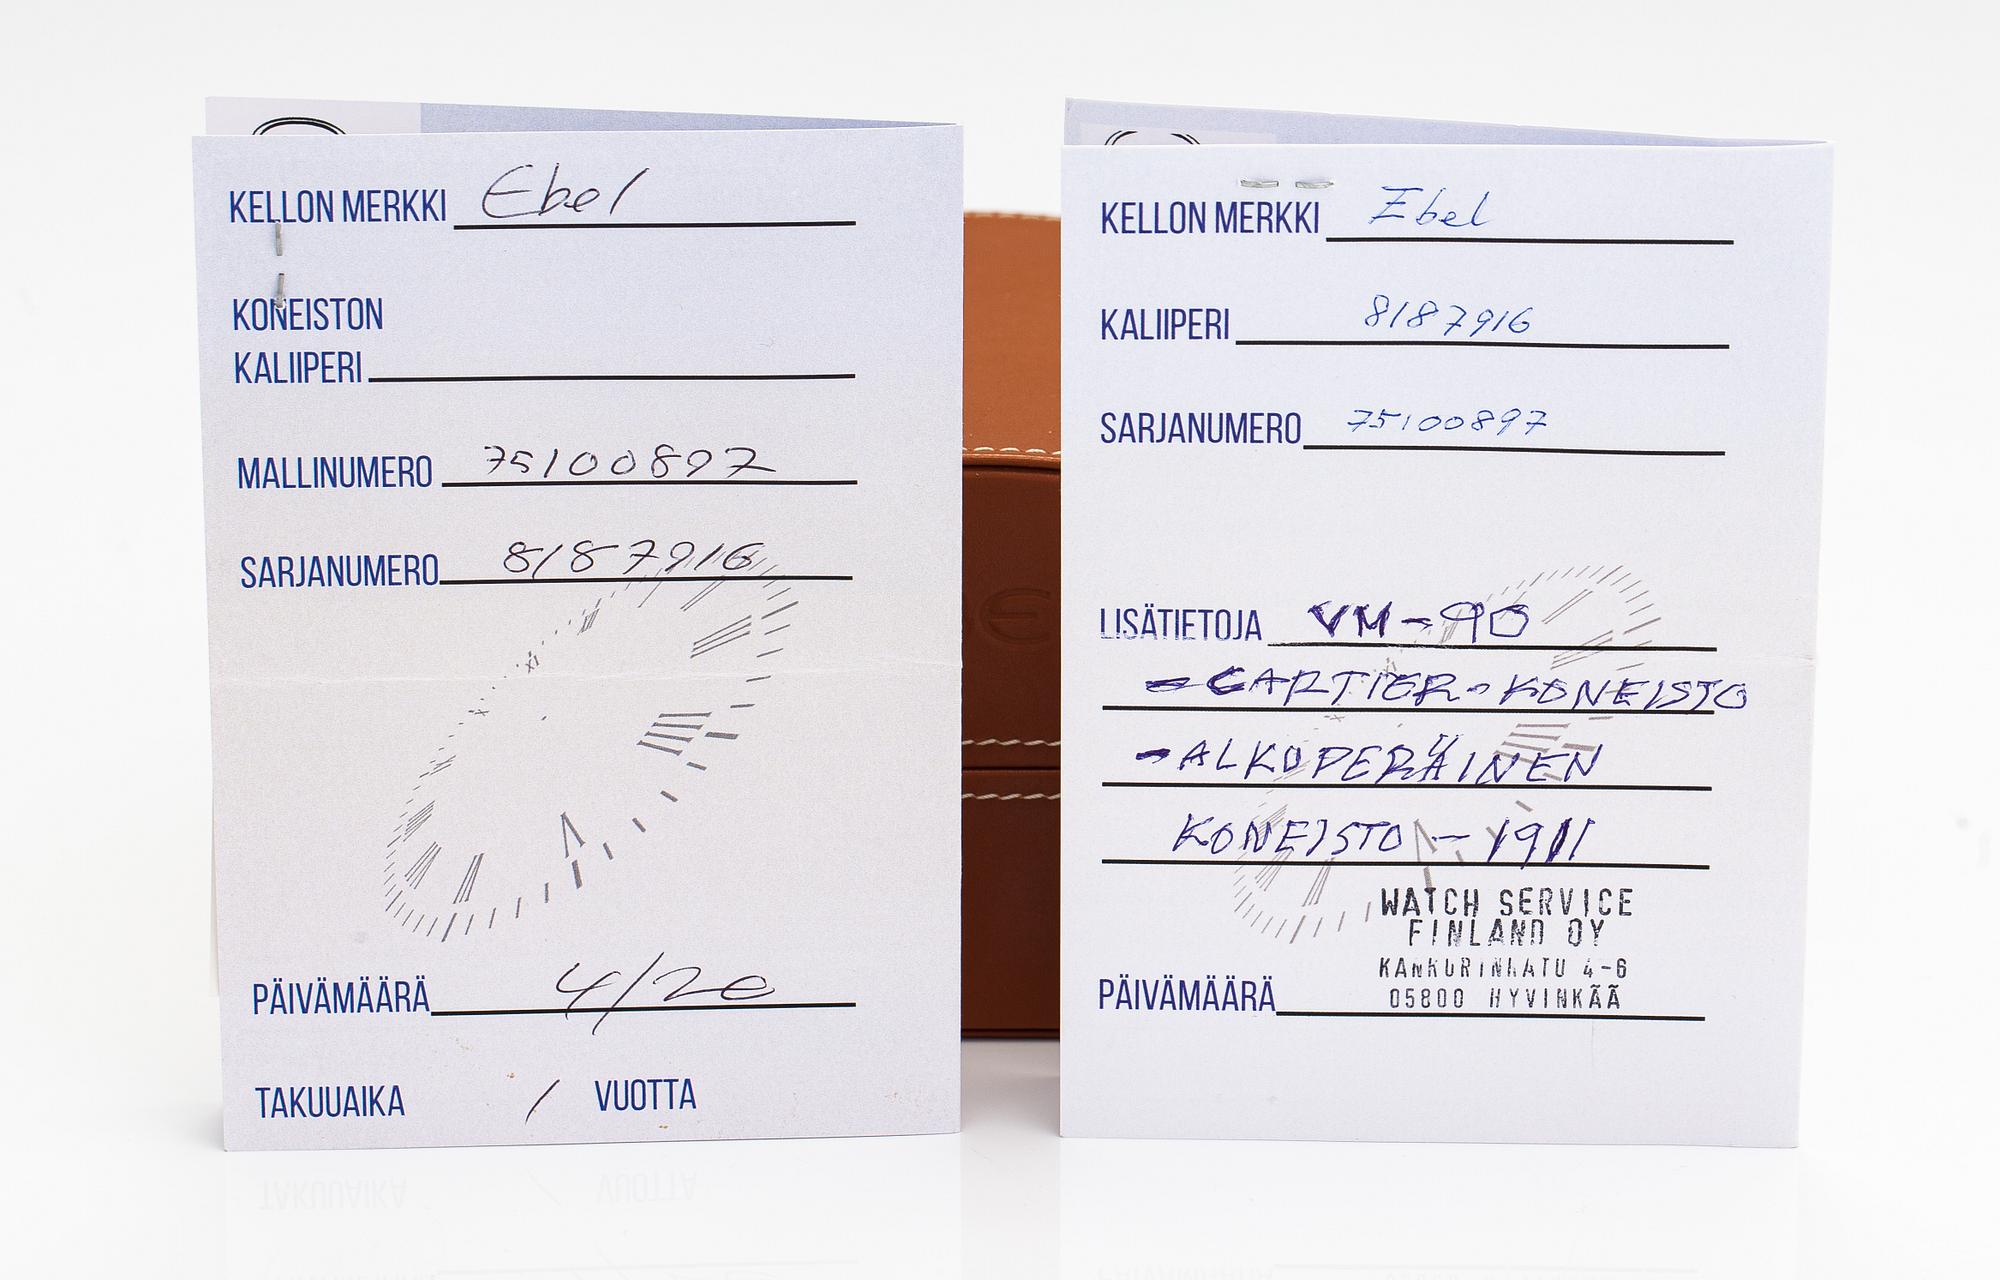 KELLON MERKKI Ebel
KONEISTON
KALIIPERI
MALLINUMERO 75100897
SARJANUMERO 8187916
PÄIVÄMÄÄRÄ 4/20
TAKUUAIKA / VUOTTA
KELLON MERKKI Ebel
KALIIPERI 8187916
SARJANUMERO 75100897
LISÄTIETOJA VM-90
- CARTIER-KONEISTO
- ALKUPERÄINEN
KONEISTO - 1911
WATCH SERVICE
FINLAND OY
KANKURINKATU 4-6
05800 HYVINKÄÄ
PÄIVÄMÄÄRÄ